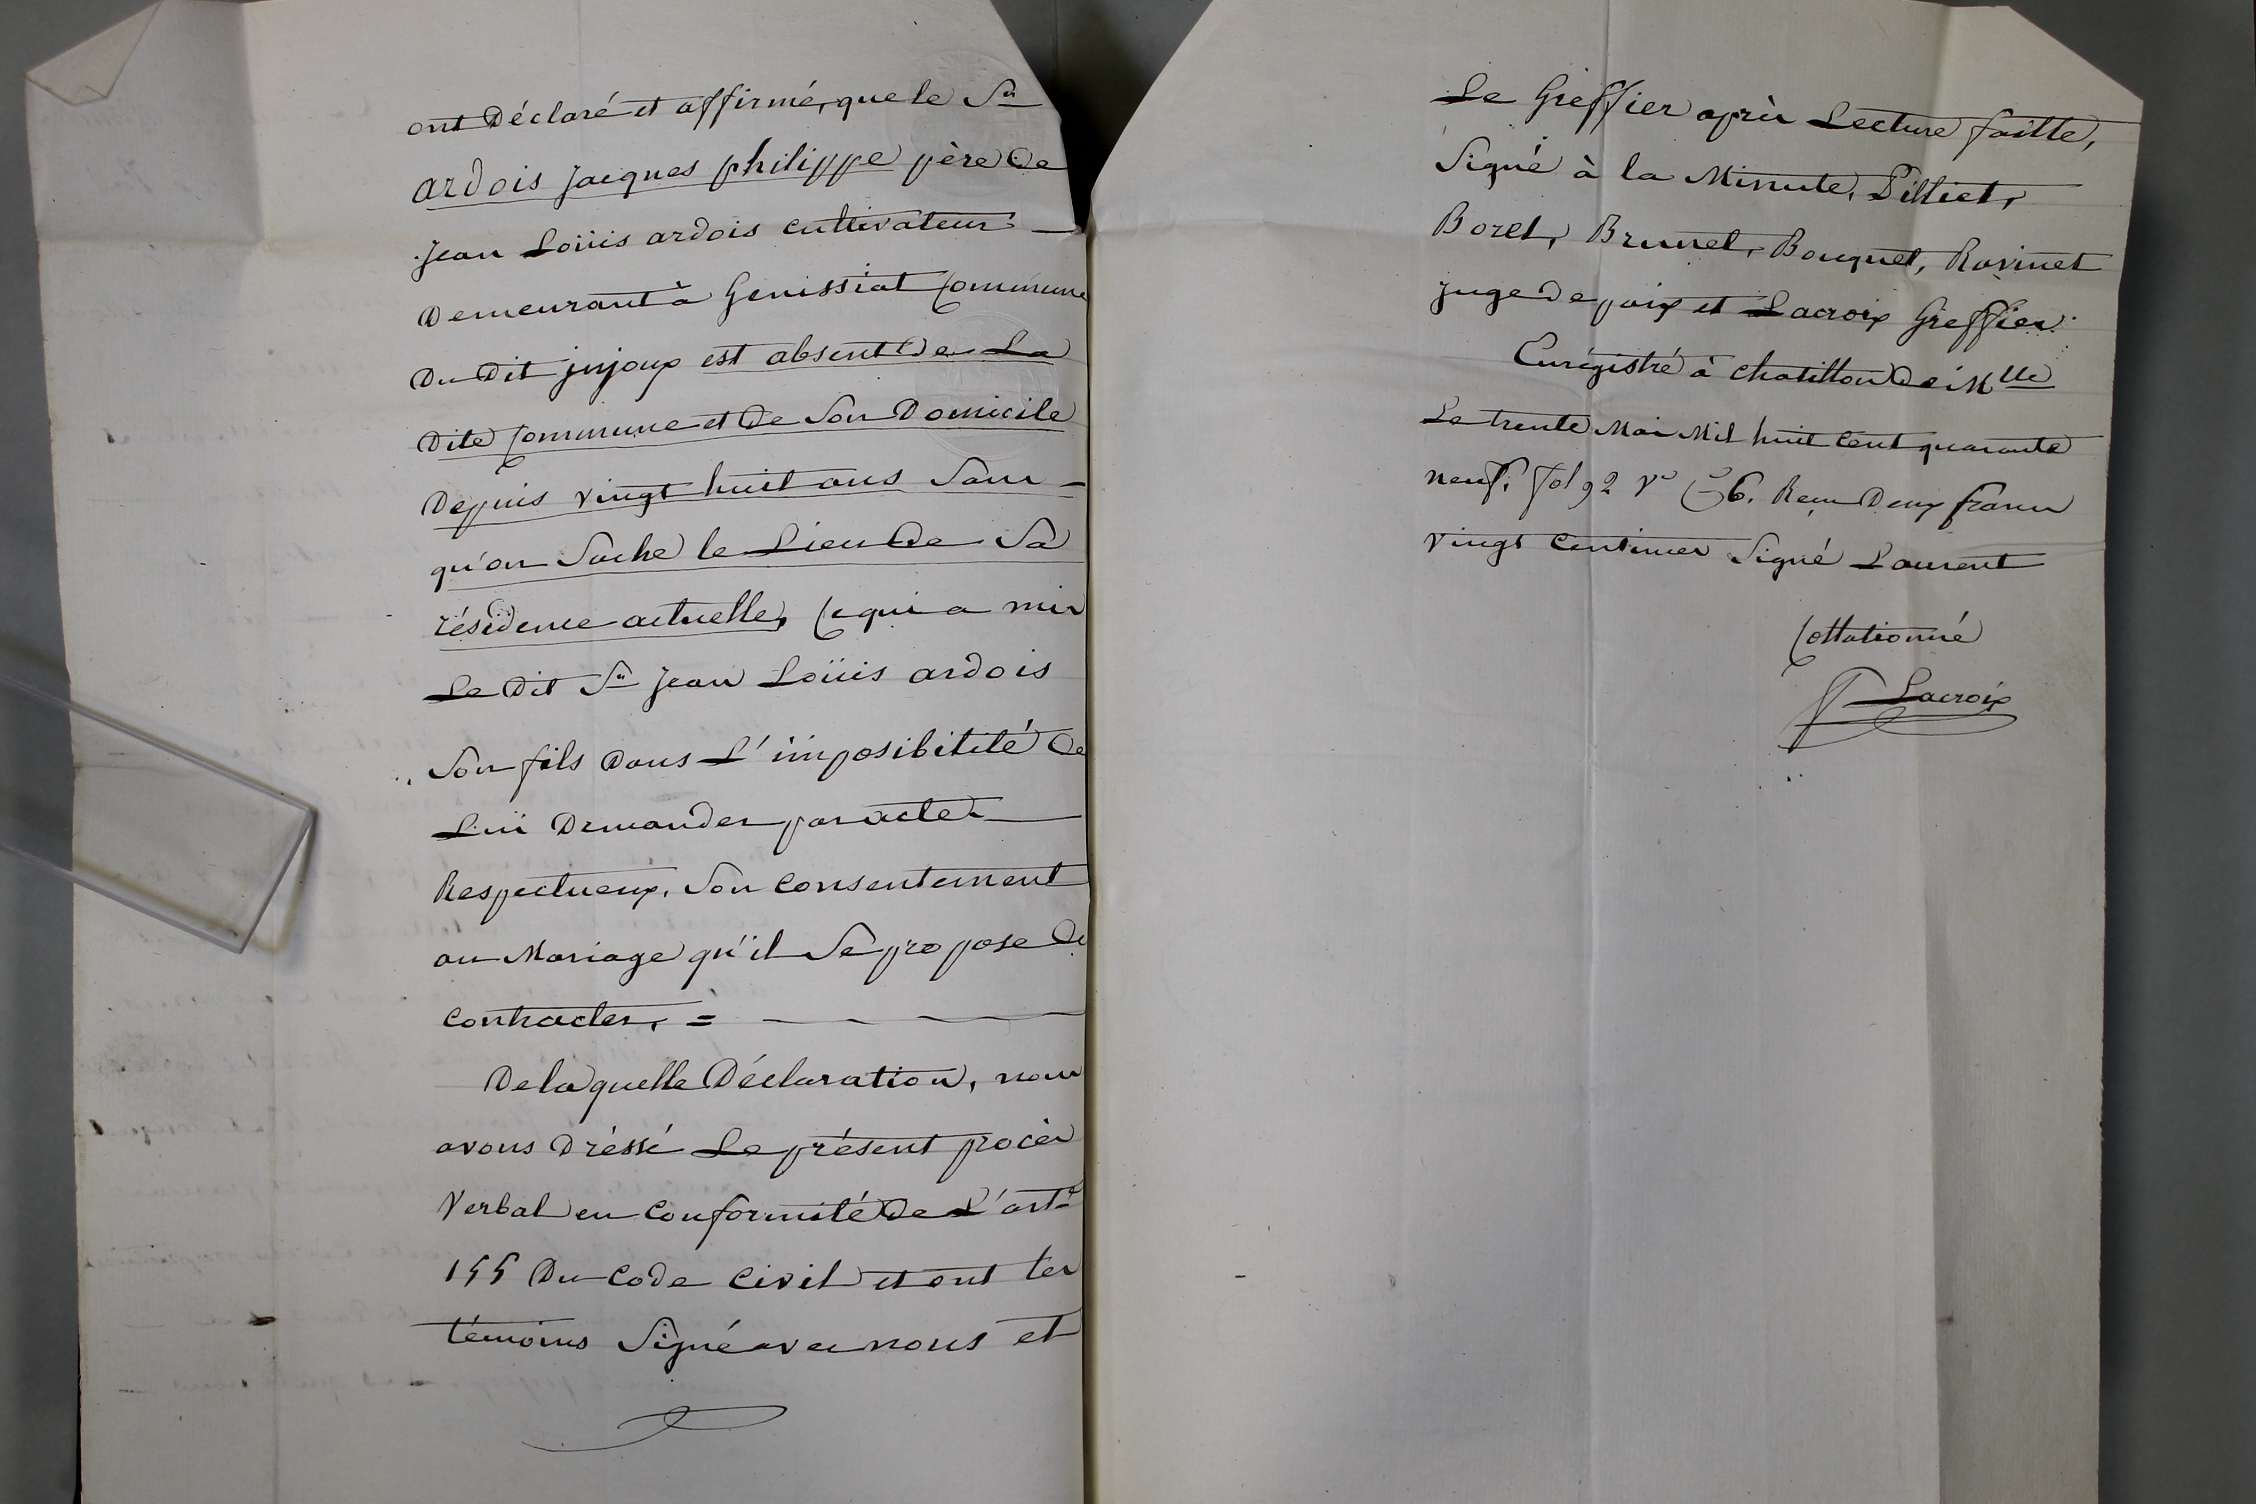 ont Déclaré et affirmé, que le Sr
ardois jacques philippe père de
jean Loüis ardois cultivateur
Demeurant à Genissiat Commune
Du Dit jnjoux est absent De La
Dite Commune et De Son Domicile
Depuis vingt huit ans Sans
qu'on Sache le Lieu De Sa
résidence actuelle, Ce qui a mis
Le Dit Sr jean Loüis ardois
Son fils Dans L'imposibilité De
Lui Demander par acte
Respectueux, Son Consentement
au Mariage qu'il Se propose De
Contracter. =
De laquelle Déclaration, nous
avons Dréssé Le présent procès
Verbal en Conformité De L'art.
155 Du Code Civil et ont les
témoins Signé avec nous et
Le Greffier après Lecture faitte,
Signé à la Minute, Pilliet,
Borel, Brunel, Bouquet, Ravinet
juge De paix et Lacroix Greffier.
Enrégistré à Chatillon De M lle
Le trente Mai Mil huit Cent quarante
neuf. fol 92 Vo C 6. Reçu Deux francs
vingt Centimes Signé Laurent
Collationné
Lacroix